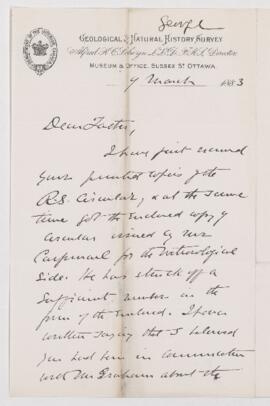 George
GEOLOGICAL & NATURAL HISTORY SURVEY
Alfred R.C. Selwyn L.L.D. F.R.S. Director
MUSEUM & OFFICE, SUSSEX ST OTTAWA.
9 March 1883
Dear Father,
I have just received
your printed copies of the
R.S. Circular, & at the same
time got the enclosed copy of
circular issued by Mr
Carpmael for the
Side. He has struck off a
sufficient number in the
form of the enclosed. I have
written saying that I believed
you had been in communication
with Mr Graham about the